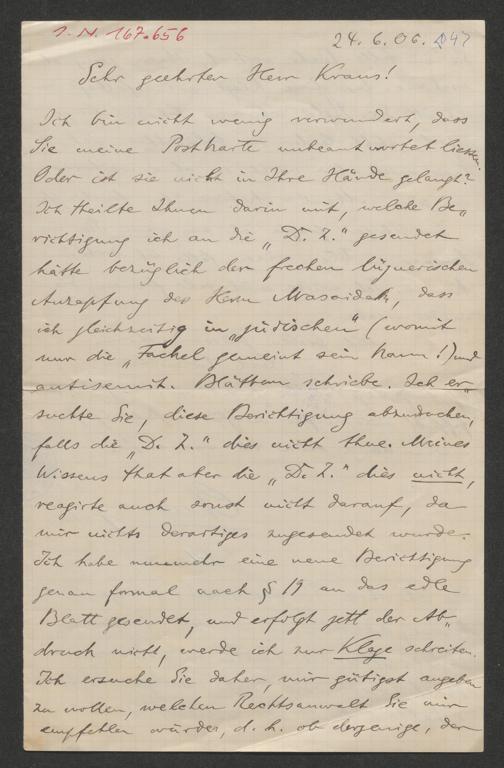 I. N. 167.656
24. 6. 06. 47
Sehr geehrter Herr Kraus!
Ich bin nicht wenig verwundert, dass
Sie meine Postkarte unbeantwortet liessen.
Oder ist sie nicht in Ihre Hände gelangt?
Ich theilte Ihnen darin mit, welche Be„
richtigung ich an die „D. Z.“ gesendet
hätte bezüglich der frechen lügnerischen
Anzapfung des Herrn Masaidek, dass
ich gleichzeitig in „jüdischen“ (womit
nur die „Fackel gemeint sein kann!) und
antisemit. Blättern schriebe. Ich er„
suchte Sie, diese Berichtigung abzudrucken,
falls die „D. Z.“ dies nicht thue. Meines
Wissens that aber die „D. Z.“ dies nicht,
reagirte auch sonst nicht darauf, da
mir nichts derartiges zugesendet wurde.
Ich habe nunmehr eine neue Berichtigung
genau formal nach § 19 an das edle
Blatt gesendet, und erfolgt jetzt der Ab„
druck nicht, werde ich zur Klage schreiten.
Ich ersuche Sie daher, mir gütigst angeben
zu wollen, welchen Rechtsanwalt Sie mir
empfehlen würden, d. h. ob derjenige, der